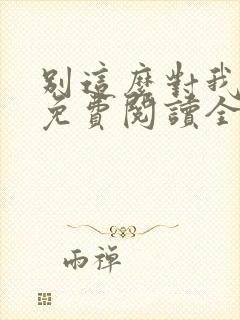 別這麼對我
免費閱讀全
雨禪